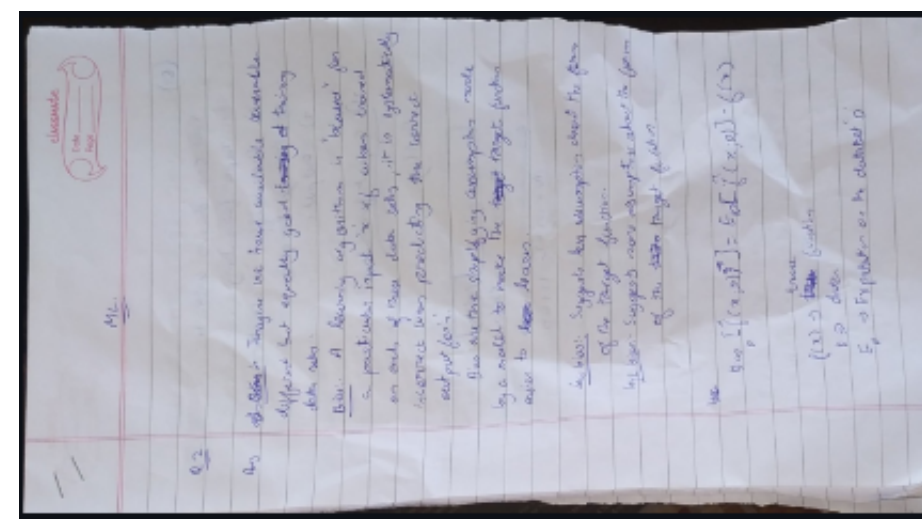 classmate
Date
Page
ML
Q2
Ans Imagine we have available several
different but equally good training
data sets
Bias: A learning algorithm is biased for
a particular input x if when trained
on each of these data sets, it is systematically
incorrect when predicting the correct
output for x
Bias are the simplifying assumptions made
by a model to make the target function
easier to learn.
Bias: Suggests less assumptions about the form
of the target function.
Bias: Suggests more assumptions about the form
of the target function
f(x) → true function
D → data
E_D → Expectation on the dataset D